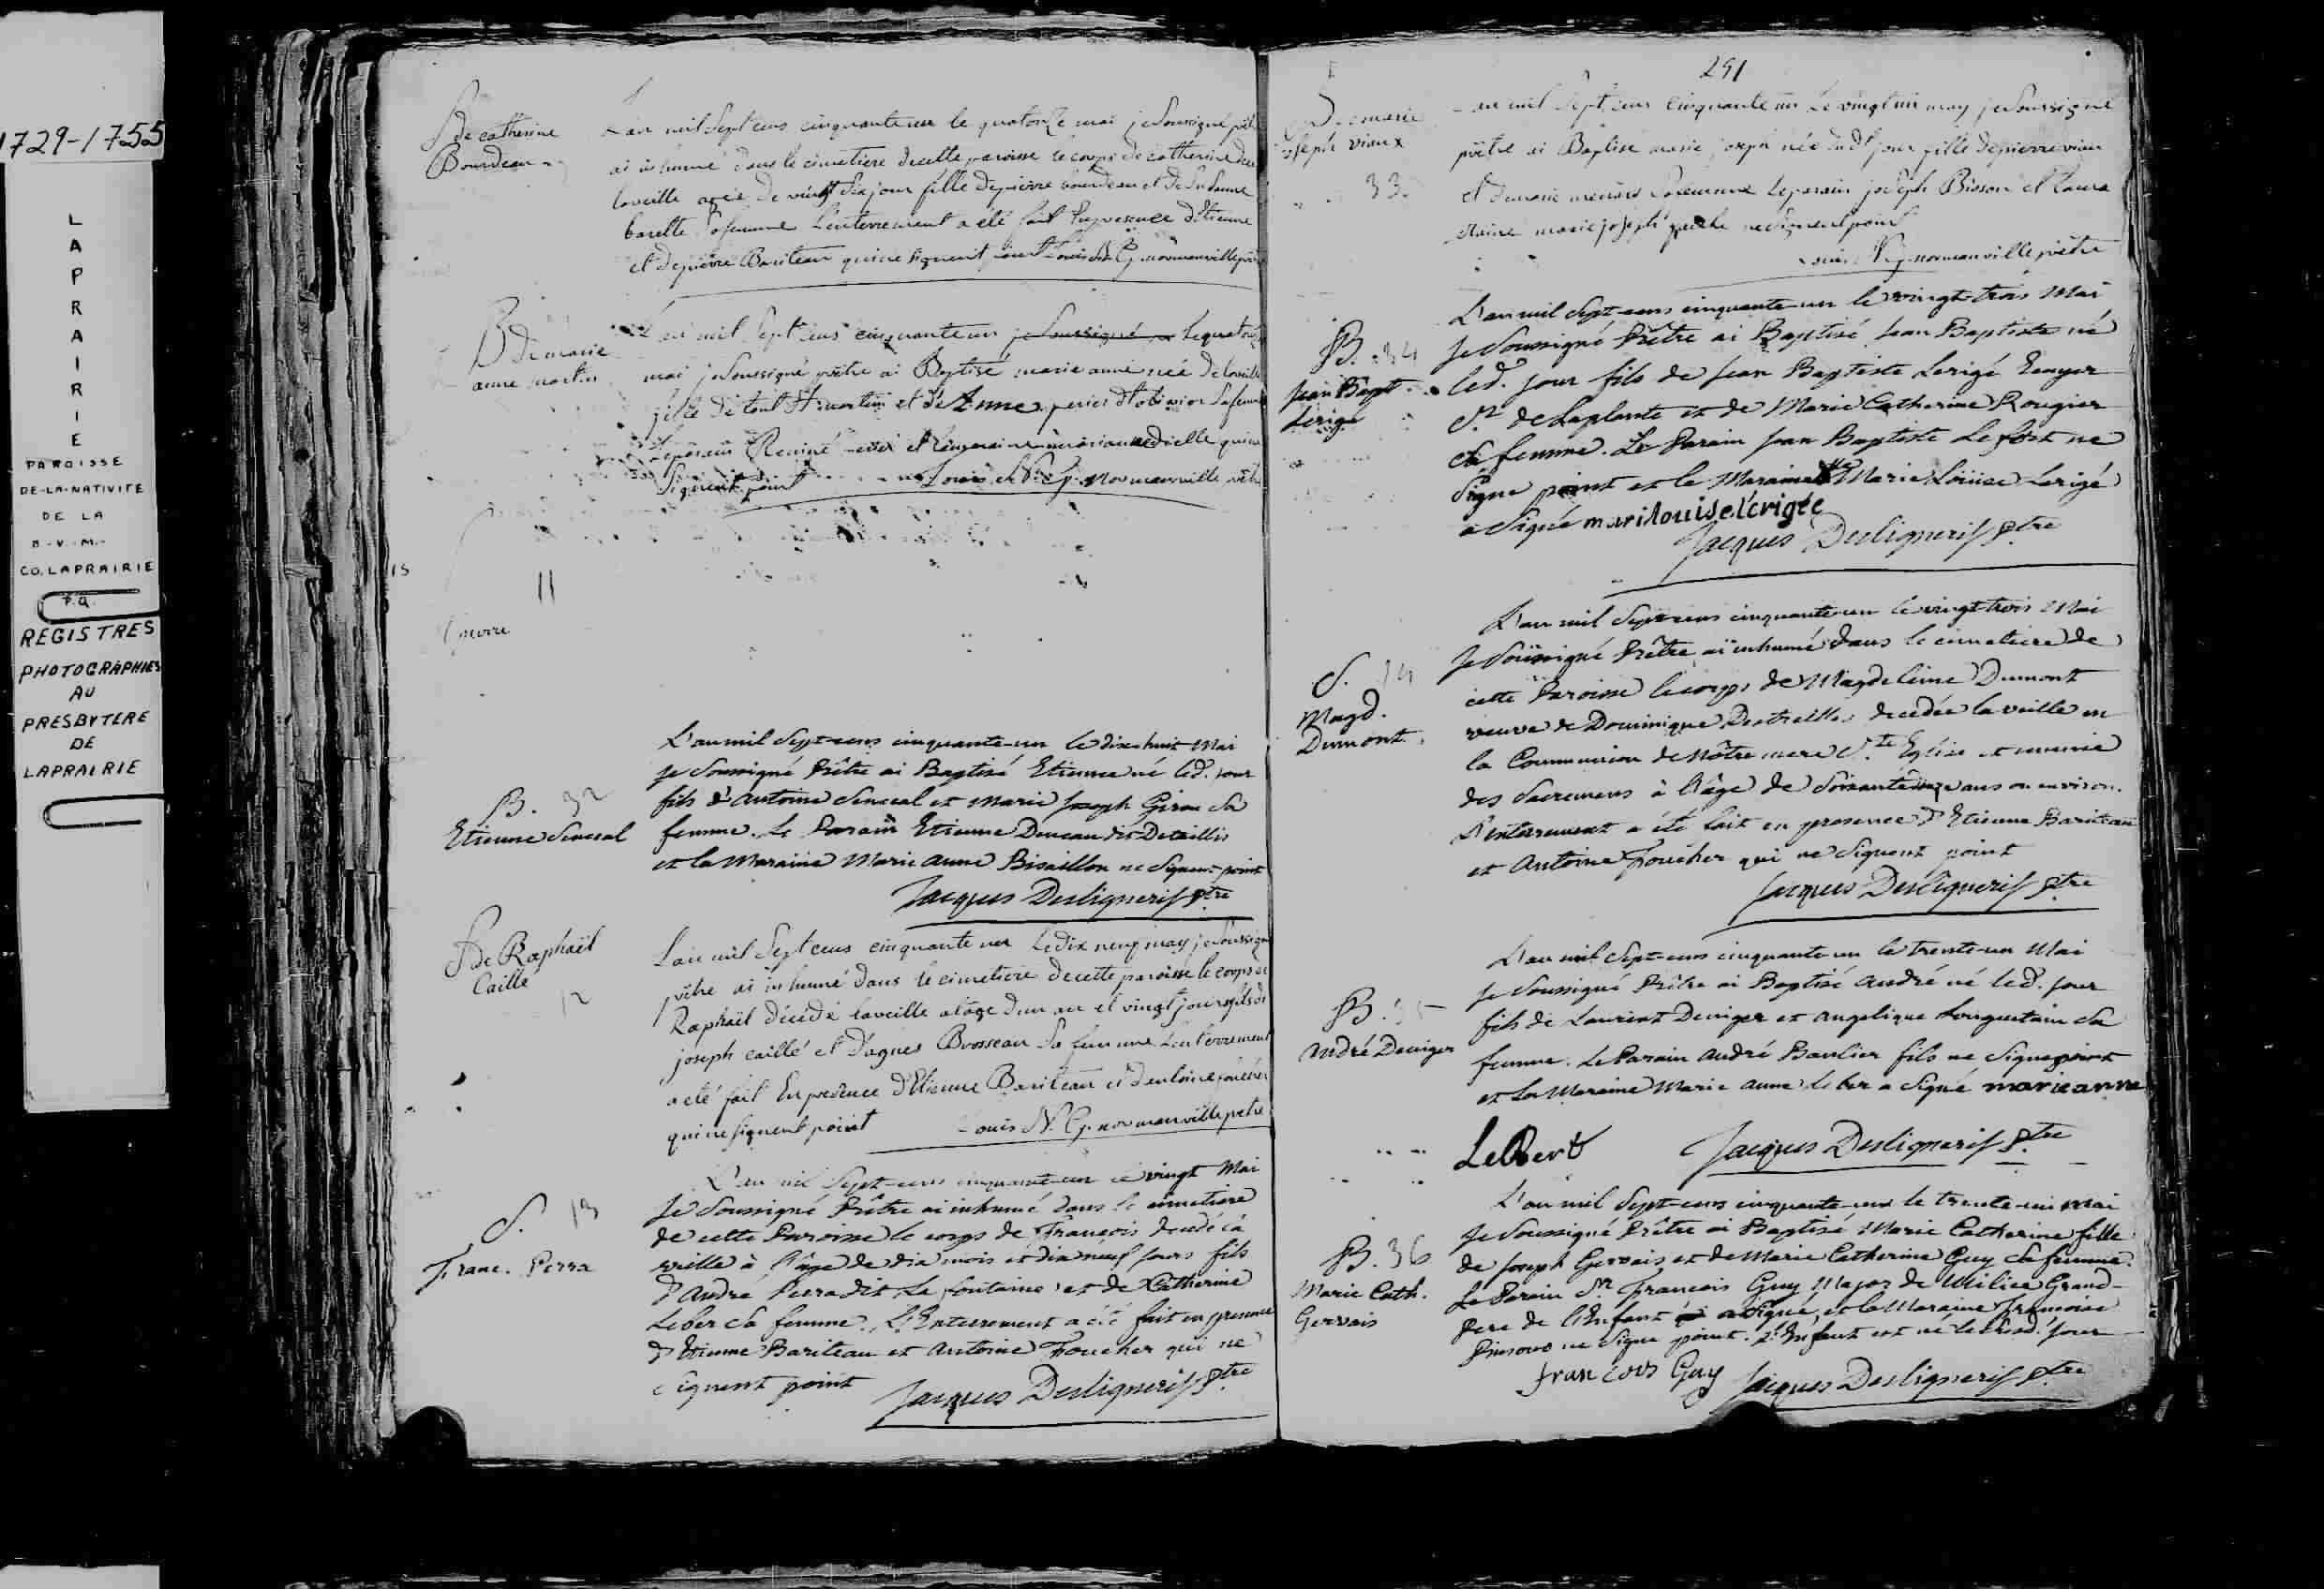 1729-1755
L
A
P
R
A
I
R
I
E
PAROISSE
DE-LA-NATIVITE
DE LA
B-V-M-
CO. LAPRAIRIE
P.Q.
REGISTRES
PHOTOGRAPHIES
AU
PRESBYTERE
DE
LAPRAIRIE
S de catherine
Bourdeau
L'an mil Sept cens cinquante un le quatorze mai je Soussigné
ai inhumé dans le cimetiere de cette paroisse le corps de catherine
la veille agée de vingt Six jour fille de pierre bourdeau et de Susanne
barette Sa femme L'enterrement a eté fait En presence d'Etienne
et de pierre Bariteau qui ne Signent point Louis N. G. normanville
B de marie
anne martin
L'an mil Sept cens cinquante un je Soussigné le quatorze
mai je Soussigné prêtre ai Baptisé marie anne née de la veille
fille de et de Anne Sa femme
Signent point Louis N. G. normanville
11
B. 32
Etienne Senecal
L'an mil Sept-cens cinquante-un le dix-huit Mai
Je Soussigné Prêtre ai Baptisé Etienne né led. jour
fils d'Antoine Senecal et Marie Joseph Girou Sa
femme. Le Parain Etienne Duneau dit Detaillis
et la Maraine Marie Anne Bisaillon ne Signent point
Jacques Desligneris ptre
S de Raphaël
Caille
12
L'an mil Sept cens cinquante un Le dix neuf may je Soussigné
prêtre ai inhumé dans le cimetiere de cette paroisse le corps de
Raphaël décédé la veille a l'âge d'un an et vingt jours fils de
joseph caillé et d'agnes Brosseau Sa femme L'enterrement
a eté fait En presence d'Etienne Bariteau et d'antoine foucher
qui ne Signent point Louis N. G. normanville prêtre
S. 13
Franc. Perra
L'an mil Sept-cens cinquante-un le vingt Mai
Je Soussigné Prêtre ai inhumé dans le cimetiere
de cette Paroisse le corps de François decedé la
veille à l'âge de dix mois et dix neuf jours fils
d'André Perra dit La fontaine et de Catherine
Leber Sa femme. L'Enterrement a été fait en presence
d'Etienne Bariteau et Antoine Foucher qui ne
Signent point Jacques Desligneris ptre
291
B de marie
joseph viaux
33
L'an mil Sept cens cinquante un Le vingt un may je Soussigné
prêtre ai Baptisé marie joseph née dudt jour fille de pierre viau
et de marie Sa femme le parain joseph Bisson et la ma
raine marie joseph ne Signent point
Louis N. G. normanville prêtre
B. 34
Jean Bapt.
Lerigé
L'an mil Sept-cens cinquante-un le vingt-trois Mai
Je Soussigné Prêtre ai Baptisé Jean Baptiste né
led. jour fils de Jean Baptiste Lerigé Ecuyer
Sr. de Laplante et de Marie Catherine Rougier
Sa femme. Le Parain Jean Baptiste Lefort ne
Signe point et la Maraine Mlle Marie Loüise Lerigé
a Signé mari louise lérigée
Jacques Desligneris ptre
S. 14
Magd.
Dumont
L'an mil Sept-cens cinquante-un le vingt-trois Mai
Je Soussigné Prêtre ai inhumé dans le cimetiere de
cette Paroisse le corps de Magdeleine Dumont
veuve de Dominique Destreilles decedée la veille en
la Communion de Nôtre mere Ste. Eglise et munie
des Sacremens à l'âge de Soixante ans ou environ.
L'enterrement a été fait en presence d'Etienne Bariteau
et Antoine Foucher qui ne Signent point
Jacques Desligneris ptre
B. 35
André Deniger
L'an mil Sept-cens cinquante-un le trente-un Mai
Je Soussigné Prêtre ai Baptisé André né led. jour
fils de Laurent Deniger et Angelique Longuetain Sa
femme. Le Parain André Baulier fils ne Signe point
et la Maraine Marie Anne Leber a Signé marie anne
LeBert Jacques Desligneris ptre
B. 36
Marie Cath.
Gervais
L'an mil Sept-cens cinquante-un le trente-un Mai
Je Soussigné Prêtre ai Baptisé Marie Catherine fille
de Joseph Gervais et de Marie Catherine Guy Sa femme.
Le Parain Sr. François Guy Major de Milice Grand-
Pere de l'Enfant a Signé, et la Maraine Françoise
Pinsono ne Signe point. L'Enfant est né le Susd. jour
francois Guy Jacques Desligneris ptre